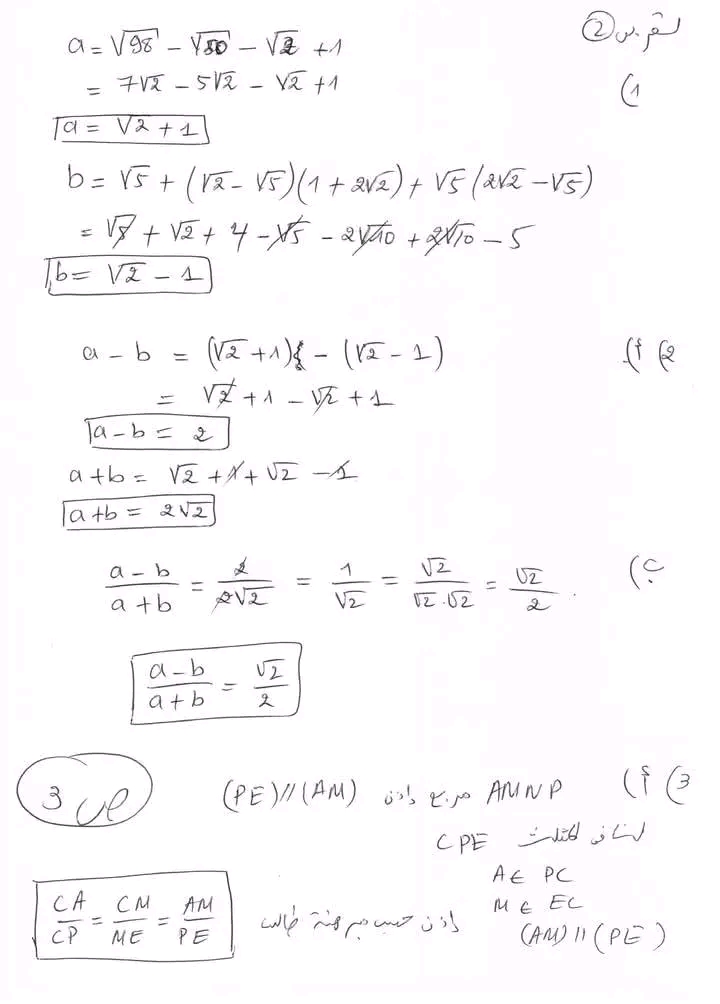 التمرين 2
1)
a = √98 - √50 - √2 + 1
= 7√2 - 5√2 - √2 + 1
a = √2 + 1
b = √5 + (√2 - √5)(1 + 2√2) + √5 (2√2 - √5)
= √5 + √2 + 4 - √5 - 2√10 + 2√10 - 5
b = √2 - 1
2) أ) a - b = (√2 + 1) - (√2 - 1)
= √2 + 1 - √2 + 1
a - b = 2
a + b = √2 + 1 + √2 - 1
a + b = 2√2
ب) (a - b)/(a + b) = 2/(2√2) = 1/√2 = √2/(√2 · √2) = √2/2 .
(a - b)/(a + b) = √2/2
ص 3
3) أ) AMNP مربع إذن (PE) // (AM)
لنا في المثلث CPE
A ∈ PC
M ∈ EC
(AM) // (PE)
إذن حسب مبرهنة طالس CA/CP = CM/ME = AM/PE